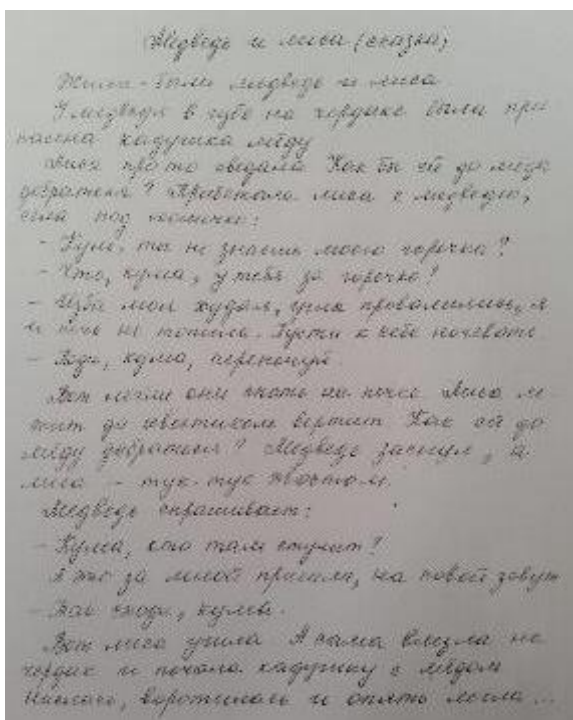 Медведь и лиса (сказка)
Жили-были медведь и лиса.
У медведя в избе на чердаке была при
пасена кадушка мёду
Лиса про то сведала. Как бы ей до мёда
добраться? Прибежала лиса к медведю,
села под окошечко:
- Кум, ты не знаешь моего горечка?
- Что, кума, у тебя за горечко?
- Изба моя худая, углы провалились, я
и печь не топила. Пусти к себе ночевать
- Поди, кума, переночуй.
Вот легли они спать на печке. Лиса ле
жит да хвостиком вертит. Как ей до
мёду добраться? Медведь заснул, а
лиса - тук-тук хвостом.
Медведь спрашивает:
- Кума, кто там стучит?
А это за мной пришли, на повой зовут
- Так сходи, кума.
Вот лиса ушла. А сама влезла на
чердак и почала кадушку с мёдом
Наелась, воротилась и опять легла...